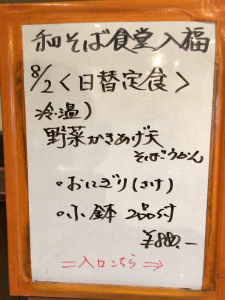 和そば食堂入福
8/2<日替定食>
冷・温)
野菜かきあげ天
そばorうどん
・おにぎり(さけ)
・小鉢 2品付
¥880.-
=入口こちら⇒